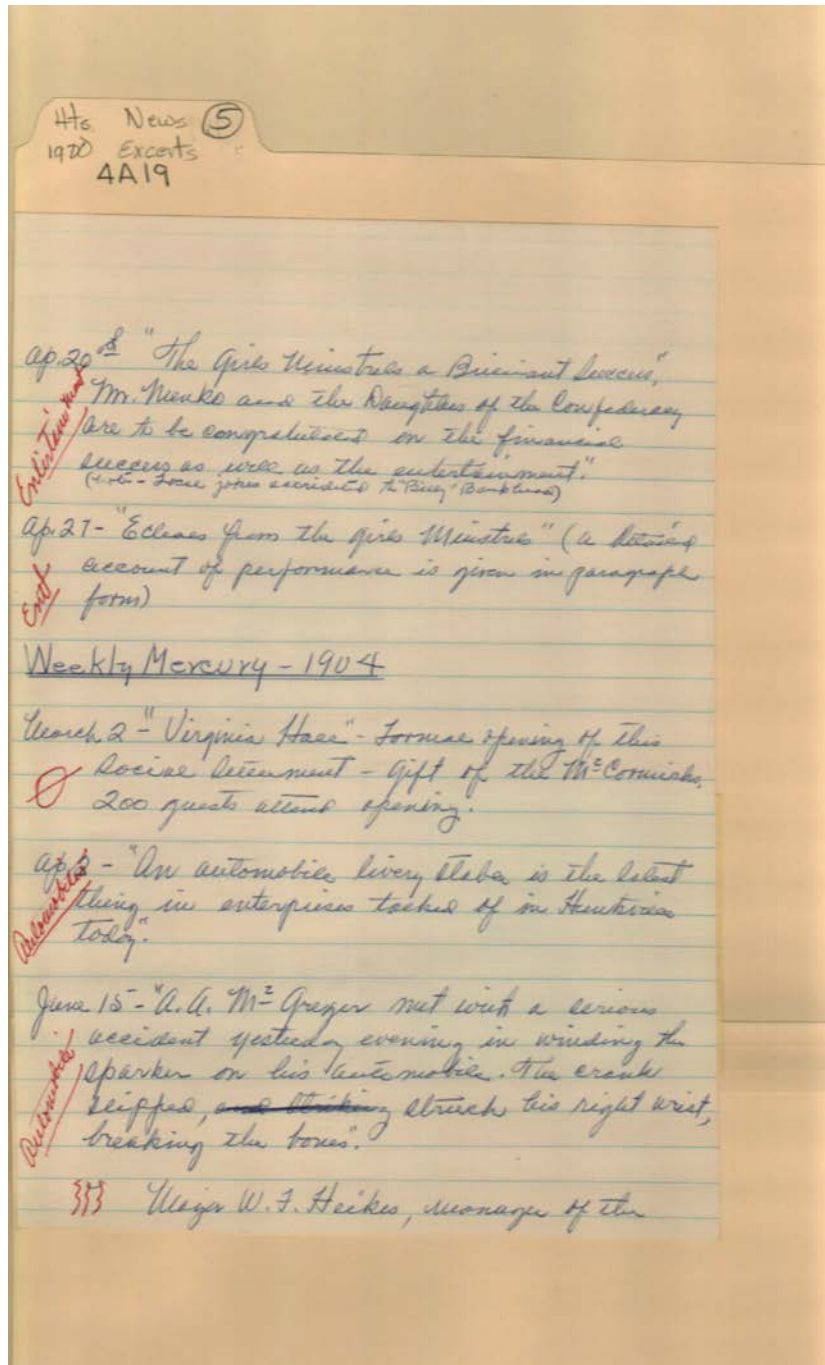 Hts. News ⑤
1920 Excerts
4A19
Ap. 20 "The Girls Minstrels a Brilliant Success",
Entertainment
Mr. Nenko and the Daughters of the Confederacy
are to be congratulated on the financial
success as well as the entertainment."
(Note - Local jokes accredited to "Billy" Bankhead)
Ap. 27 - "Echoes from the Girls Minstrels" (a detailed
account of performance is given in paragraph
Ent
form)
Weekly Mercury - 1904
March 2 - "Virginia Hall" - Formal opening of this
social - Gift of the McCormicks.
200 guests attend opening.
Ap. - "An automobile livery stable is the latest
Automobiles
thing in enterprises talked of in Huntsville
today".
June 15 - "A. A. McGregor met with a serious
accident yesterday evening in winding the
Automobile
sparker on his automobile. The crank
slipped, and striking struck his right wrist,
breaking the bones".
Major W. F. Heikes, manager of the